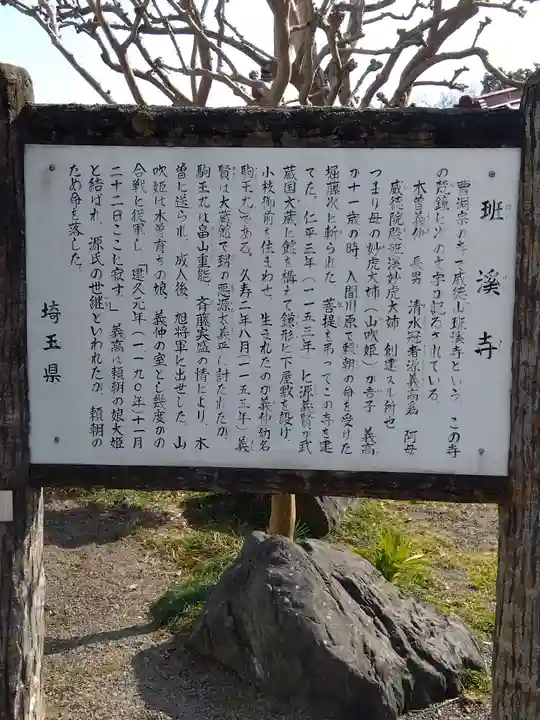 班溪寺
曹洞宗の寺で威徳山班渓寺という この寺
の梵鐘に次の文字が記されている。
木曽義仲 長男 清水冠者源義高為 阿母
威徳院殿班渓妙虎大姉 創建スル所也
つまり母の妙虎大姉（山吹姫）が吾子 義高
が十一歳の時、入間川原で頼朝の命を受けた
堀藤次に斬られた 菩提を弔ってこの寺を建
てた。仁平三年（一一五三年）に源義賢が武
蔵国大蔵に館を構えて鎌形に下屋敷を設け
小枝御前を住まわせ、生まれたのが義仲幼名
駒王丸である。久寿二年八月（一一五五年）義
賢は大蔵館で甥の悪源太義平に討たれたが、
駒王丸は畠山重能、斉藤実盛の情により、木
曽に送られ、成人後、旭将軍に出世した。山
吹姫は木曽育ちの娘、義仲の室として幾度かの
合戦に従軍し「建久元年（一一九〇年）十一月
二十二日ここに寂す。」義高は頼朝の娘大姫
と結ばれ、源氏の世継といわれたが、頼朝の
ため命を落した。
埼玉県